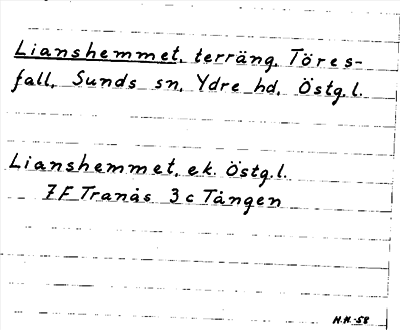 Lianshemmet, terräng, Töres-
fall, Sunds sn, Ydre hd, Östg.l.
Lianshemmet, ek. Östg.l.
7F Tranås 3 c Tången
H.H.-58